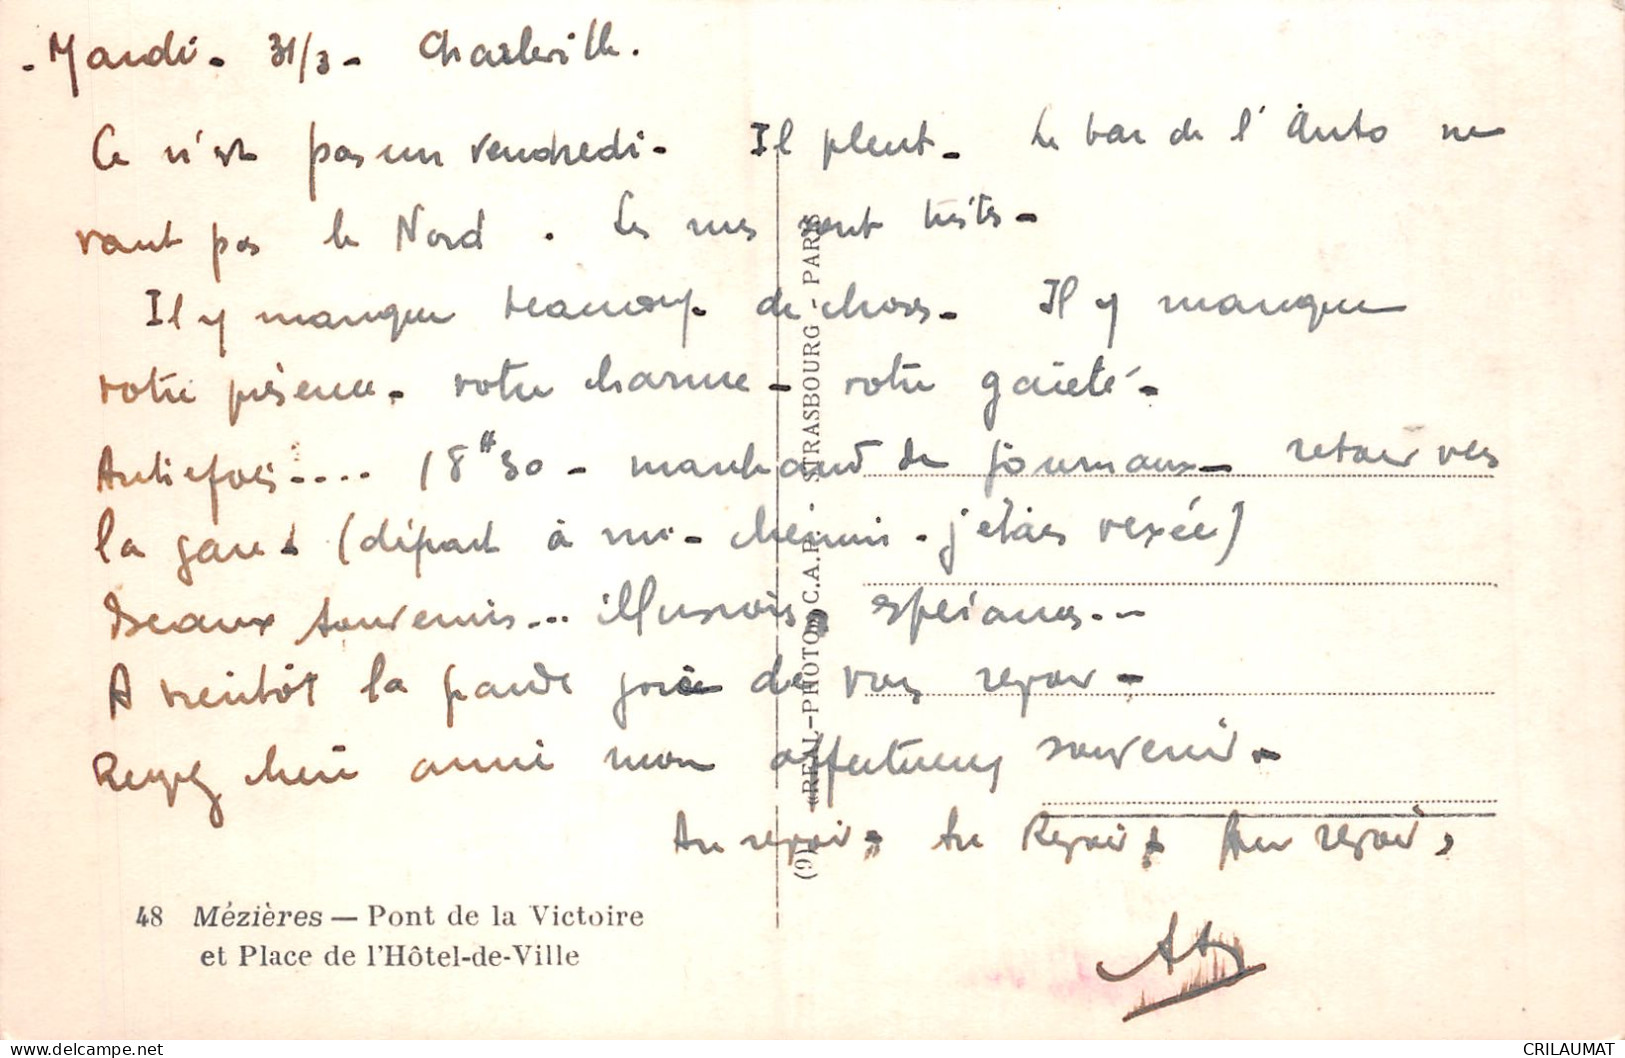 - Mardi - 31/3 - Charleville.
Ce n'est pas un vendredi - Il pleut - Le bar de l'Auto ne
vaut pas le Nord . Les rues sont tristes -
Il y manque beaucoup de choses - Il y manque
votre présence - votre charme - votre gaieté -
Autrefois .... 18H30 - marchand de journaux - retour vers
la gare (départ à mi-chemin - j'étais vexée)
Beaux souvenirs ... illusions, espérances ...
A bientôt la grande joie de vous revoir -
Recevez chère amie mon affectueux souvenir -
Au revoir, Au Revoir, Au revoir,
48 Mézières — Pont de la Victoire
et Place de l'Hôtel-de-Ville
(9) «REAL-PHOTO» C.A.P. - STRASBOURG - PARIS
CRILAUMAT
https://www.delcampe.net